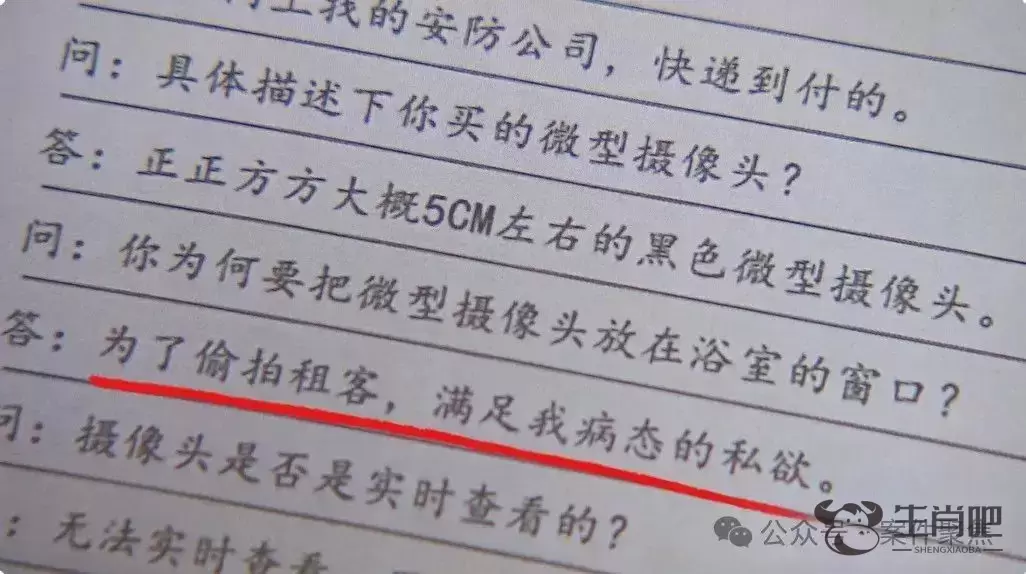 我的安防公司，快递到付的。
问：具体描述下你买的微型摄像头？
答：正正方方大概5CM左右的黑色微型摄像头。
问：你为何要把微型摄像头放在浴室的窗口？
答：为了偷拍租客，满足我病态的私欲。
问：摄像头是否是实时查看的？
：无法实时查看
公众号 案件聚焦
牛肖吧
SHENGXIAOBA